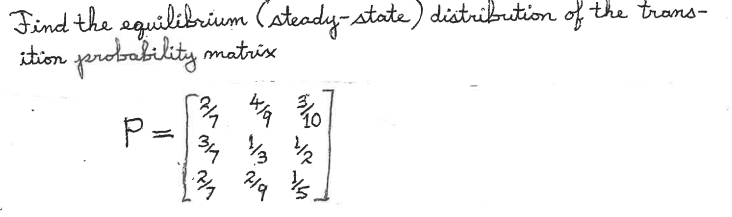 Find the equilibrium (steady-state) distribution of the trans-
ition probability matrix
P = [ 2/7 4/9 3/10
3/7 1/3 1/2
2/7 2/9 1/5 ]